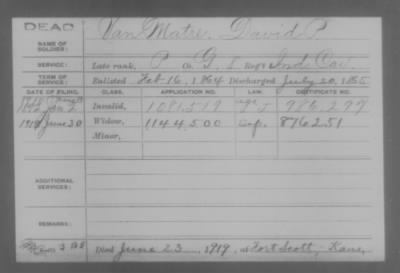 DEAD
NAME OF SOLDIER: Van Matre, David P.
SERVICE: Late rank, P Co. G, 5 Reg't Ind Cav
TERM OF SERVICE: Enlisted Feb 16, 1864 Discharged July 20, 1865
DATE OF FILING. CLASS. APPLICATION NO. LAW. CERTIFICATE NO.
1892 Jan 2 Invalid, 1081,519 986,297
1919 June 30 Widow, 1144500 876251
Minor,
ADDITIONAL SERVICES:
REMARKS:
Died June 23, 1919, at Fort Scott, Kans,